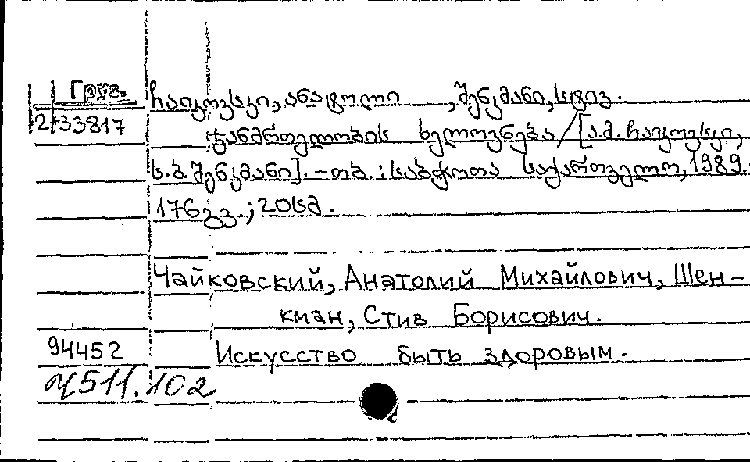 Груз. ჩაიკოვსკი, ანატოლი , შენკმანი, სტივ.
2-33817 ჯანმრთელობის ხელოვნება / [ა.მ. ჩაიკოვსკი,
ს.ბ. შენკმანი]. – თბ. : საბჭოთა საქართველო, 1989.
176 გვ. ; 20 სმ.
Чайковский, Анатолий Михайлович, Шен-
кман, Стив Борисович.
94452 Искусство быть здоровым.
Ч511.102